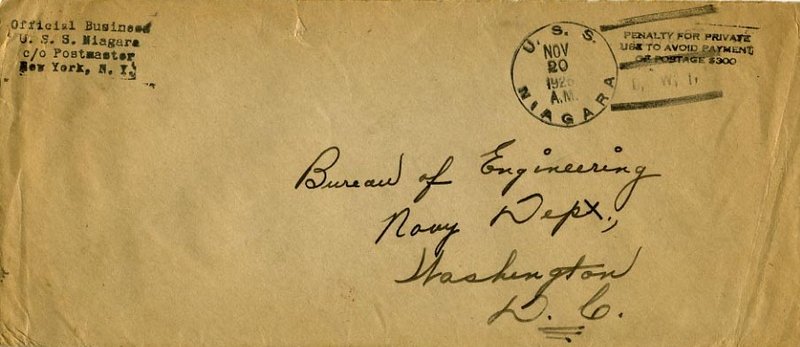 Official Business
U. S. S. Niagara
c/o Postmaster
New York, N. Y.
U. S. S.
NOV
20
A.M.
NIAGARA
PENALTY FOR PRIVATE
USE TO AVOID PAYMENT
OF POSTAGE $300
Bureau of Engineering
Navy Dept.,
Washington
D. C.